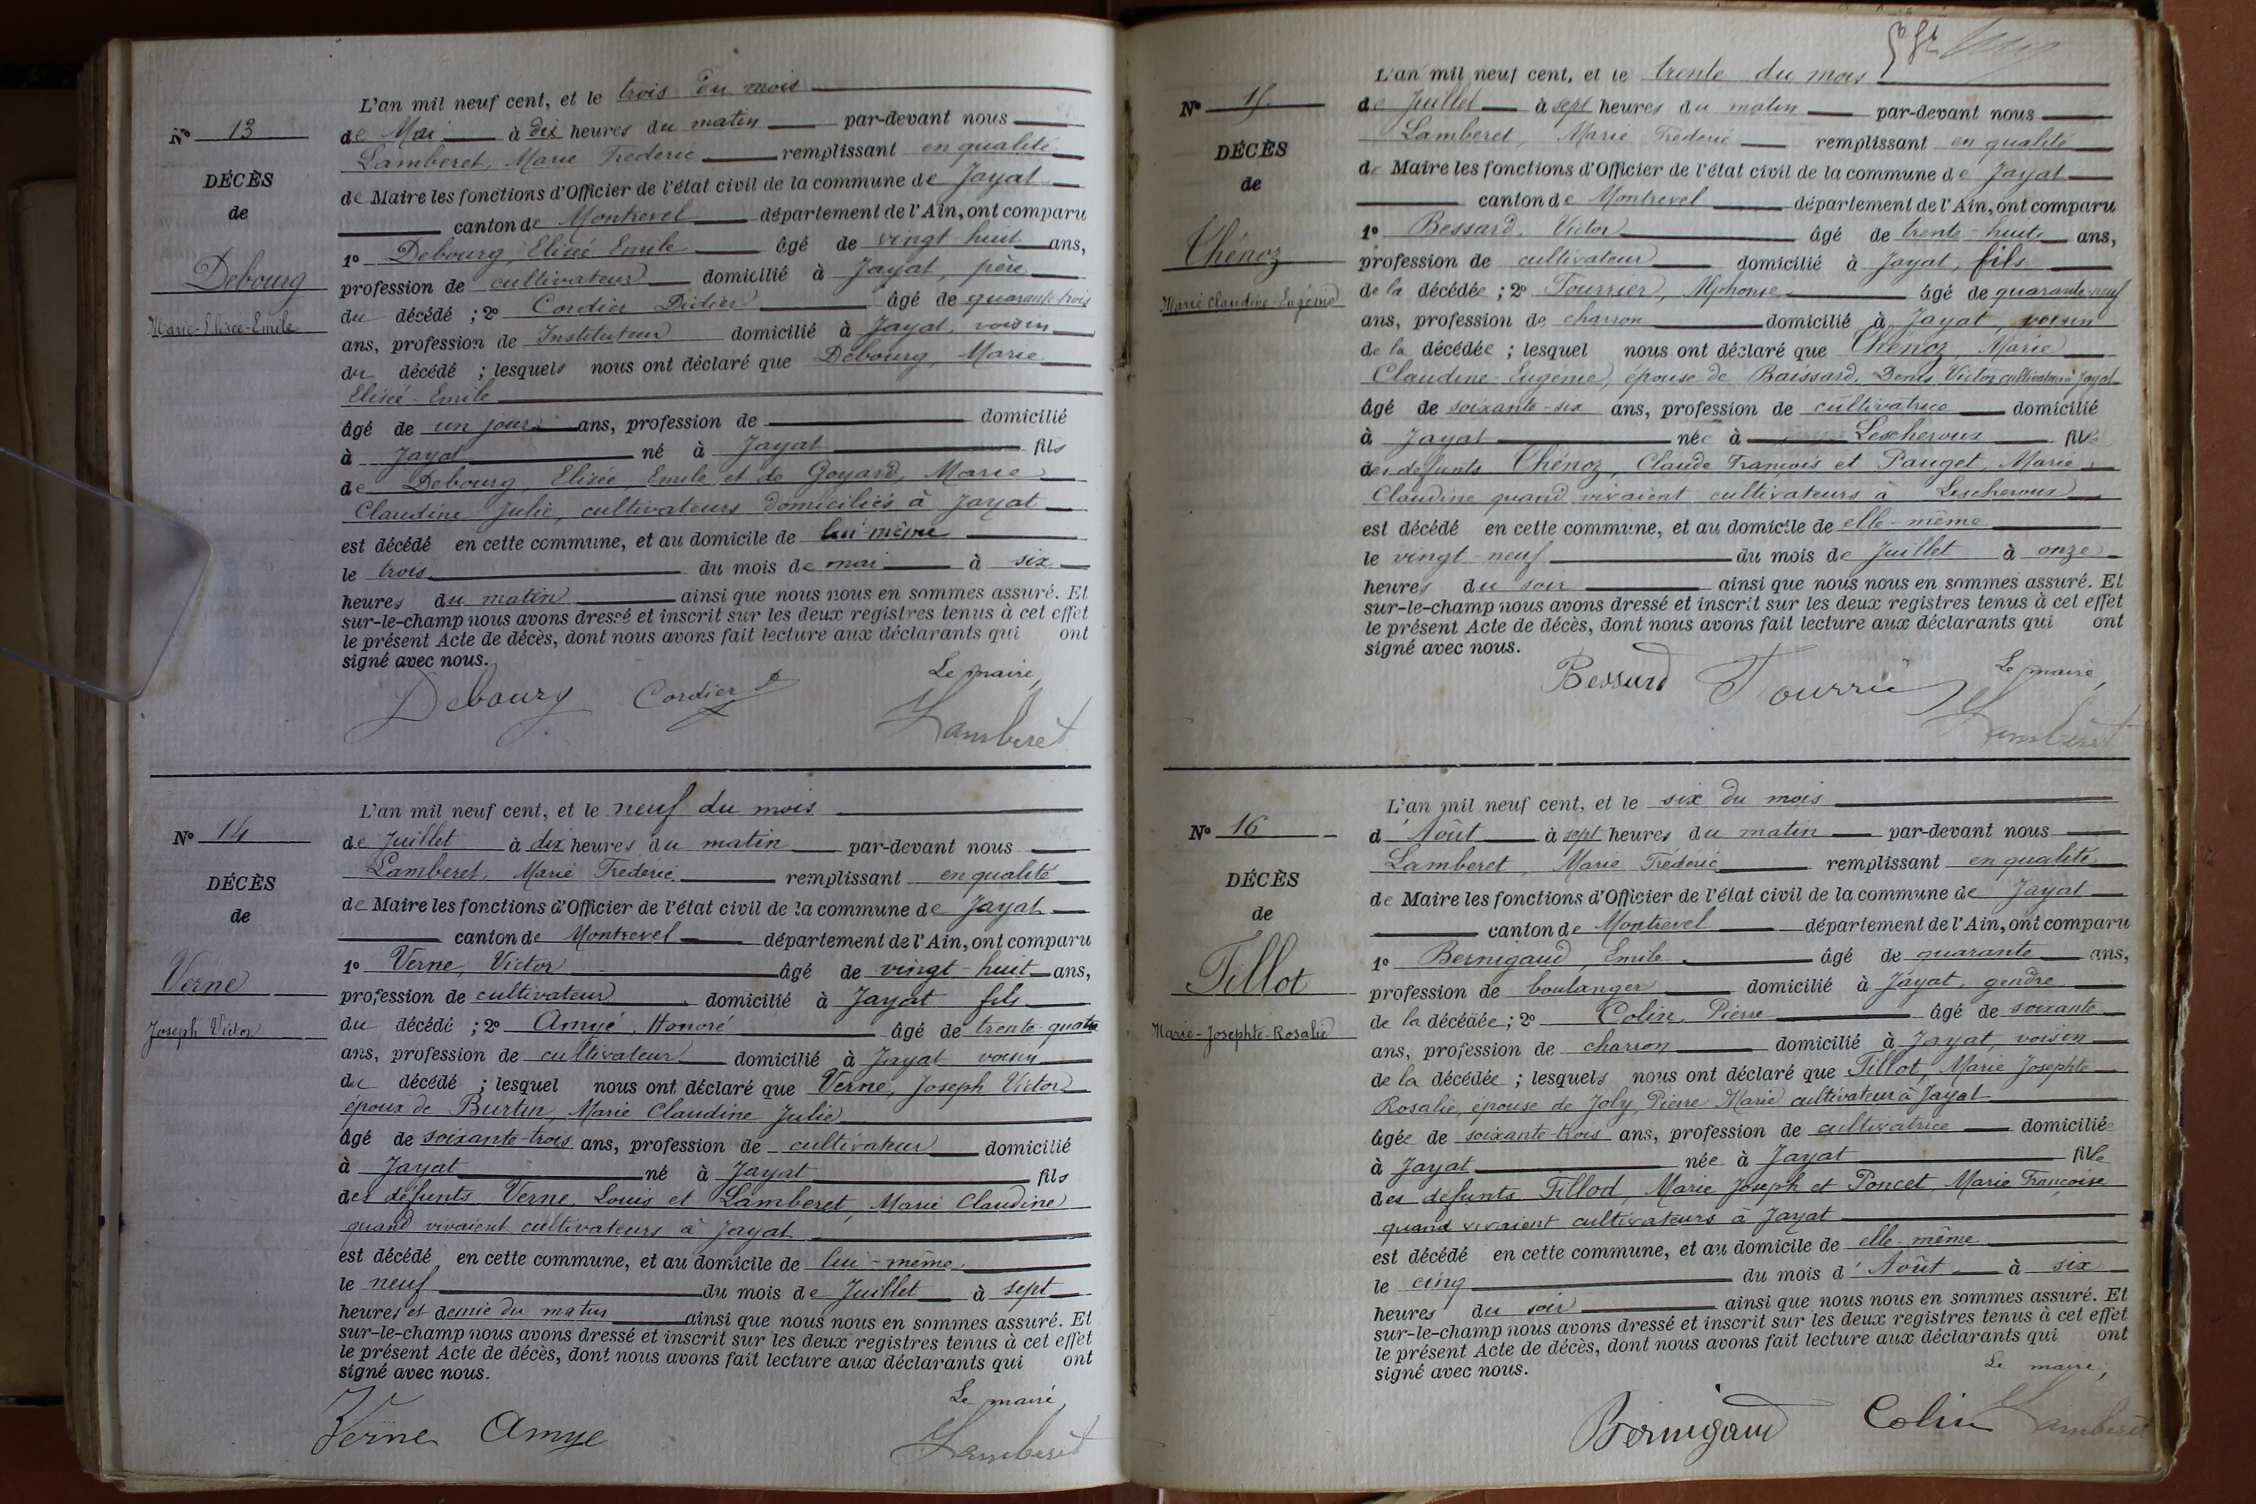 L'an mil neuf cent, et le trois du mois
N° 13
de Mai à dix heures du matin par-devant nous
Lamberet, Marie Frédéric remplissant en qualité
DÉCÈS
de Maire les fonctions d'Officier de l'état civil de la commune de Jayat
de
canton de Montrevel département de l'Ain, ont comparu
1° Debourg, Elisée Emile âgé de vingt-huit ans,
Debourg
profession de cultivateur domicilié à Jayat, père
du décédé ; 2° Cordier Didier âgé de quarante-trois
Marie-Elisée-Emile
ans, profession de Instituteur domicilié à Jayat, voisin
du décédé ; lesquels nous ont déclaré que Debourg, Marie
Elisée-Emile
âgé de un jour ans, profession de domicilié
à Jayat né à Jayat fils
de Debourg, Elisée, Emile et de Goyard, Marie
Claudine Julie, cultivateurs domiciliés à Jayat
est décédé en cette commune, et au domicile de lui-même
le trois du mois de mai à six
heures du matin ainsi que nous nous en sommes assuré. Et
sur-le-champ nous avons dressé et inscrit sur les deux registres tenus à cet effet
le présent Acte de décès, dont nous avons fait lecture aux déclarants qui ont
signé avec nous.
Le maire,
Debourg Cordier D Lamberet
L'an mil neuf cent, et le neuf du mois
N° 14
de Juillet à dix heures du matin par-devant nous
Lamberet, Marie Frédéric remplissant en qualité
DÉCÈS
de Maire les fonctions d'Officier de l'état civil de la commune de Jayat
de
canton de Montrevel département de l'Ain, ont comparu
1° Verne, Victor âgé de vingt-huit ans,
Verne
profession de cultivateur domicilié à Jayat fils
du décédé ; 2° Amyé, Honoré âgé de trente-quatre
Joseph Victor
ans, profession de cultivateur domicilié à Jayat voisin
du décédé ; lesquel nous ont déclaré que Verne, Joseph Victor
époux de Burtin, Marie Claudine Julie
âgé de soixante-trois ans, profession de cultivateur domicilié
à Jayat né à Jayat fils
des défunts Verne, Louis et Lamberet, Marie Claudine
quand vivaient cultivateurs à Jayat
est décédé en cette commune, et au domicile de lui-même
le neuf du mois de Juillet à sept
heures et demie du matin ainsi que nous nous en sommes assuré. Et
sur-le-champ nous avons dressé et inscrit sur les deux registres tenus à cet effet
le présent Acte de décès, dont nous avons fait lecture aux déclarants qui ont
signé avec nous.
Le maire,
Verne Amye Lamberet
L'an mil neuf cent, et le trente du mois
N° 15
de Juillet à sept heures du matin par-devant nous
Lamberet, Marie Frédéric remplissant en qualité
DÉCÈS
de Maire les fonctions d'Officier de l'état civil de la commune de Jayat
de
canton de Montrevel département de l'Ain, ont comparu
1° Bessard, Victor âgé de trente-huit ans,
Chénoz
profession de cultivateur domicilié à Jayat, fils
de la décédée ; 2° Fourrier, Alphonse âgé de quarante-neuf
Marie Claudine-Eugénie
ans, profession de charron domicilié à Jayat, voisin
de la décédée ; lesquel nous ont déclaré que Chénoz, Marie
Claudine-Eugénie, épouse de Baissard, Denis Victor cultivateur à Jayat
âgé de soixante-six ans, profession de cultivatrice domicilié
à Jayat née à Lescheroux fille
des défunts Chénoz, Claude François et Pauget, Marie
Claudine quand vivaient cultivateurs à Lescheroux
est décédé en cette commune, et au domicile de elle-même
le vingt-neuf du mois de Juillet à onze
heures du soir ainsi que nous nous en sommes assuré. Et
sur-le-champ nous avons dressé et inscrit sur les deux registres tenus à cet effet
le présent Acte de décès, dont nous avons fait lecture aux déclarants qui ont
signé avec nous.
Le maire,
Bessard Fourrier Lamberet
L'an mil neuf cent, et le six du mois
N° 16
d'Août à sept heures du matin par-devant nous
Lamberet, Marie Frédéric remplissant en qualité
DÉCÈS
de Maire les fonctions d'Officier de l'état civil de la commune de Jayat
de
canton de Montrevel département de l'Ain, ont comparu
1° Bernigaud, Emile âgé de quarante ans,
Tillot
profession de boulanger domicilié à Jayat, gendre
de la décédée ; 2° Colin, Pierre âgé de soixante
Marie-Josephte-Rosalie
ans, profession de charron domicilié à Jayat, voisin
de la décédée ; lesquels nous ont déclaré que Tillot, Marie Josephte
Rosalie, épouse de Joly, Pierre Marie cultivateur à Jayat
âgée de soixante-trois ans, profession de cultivatrice domiciliée
à Jayat née à Jayat fille
des défunts Tillod, Marie Joseph et Poncet, Marie Françoise
quand vivaient cultivateurs à Jayat
est décédé en cette commune, et au domicile de elle-même
le cinq du mois d'Août à six
heures du soir ainsi que nous nous en sommes assuré. Et
sur-le-champ nous avons dressé et inscrit sur les deux registres tenus à cet effet
le présent Acte de décès, dont nous avons fait lecture aux déclarants qui ont
signé avec nous.
Le maire,
Bernigaud Colin Lamberet